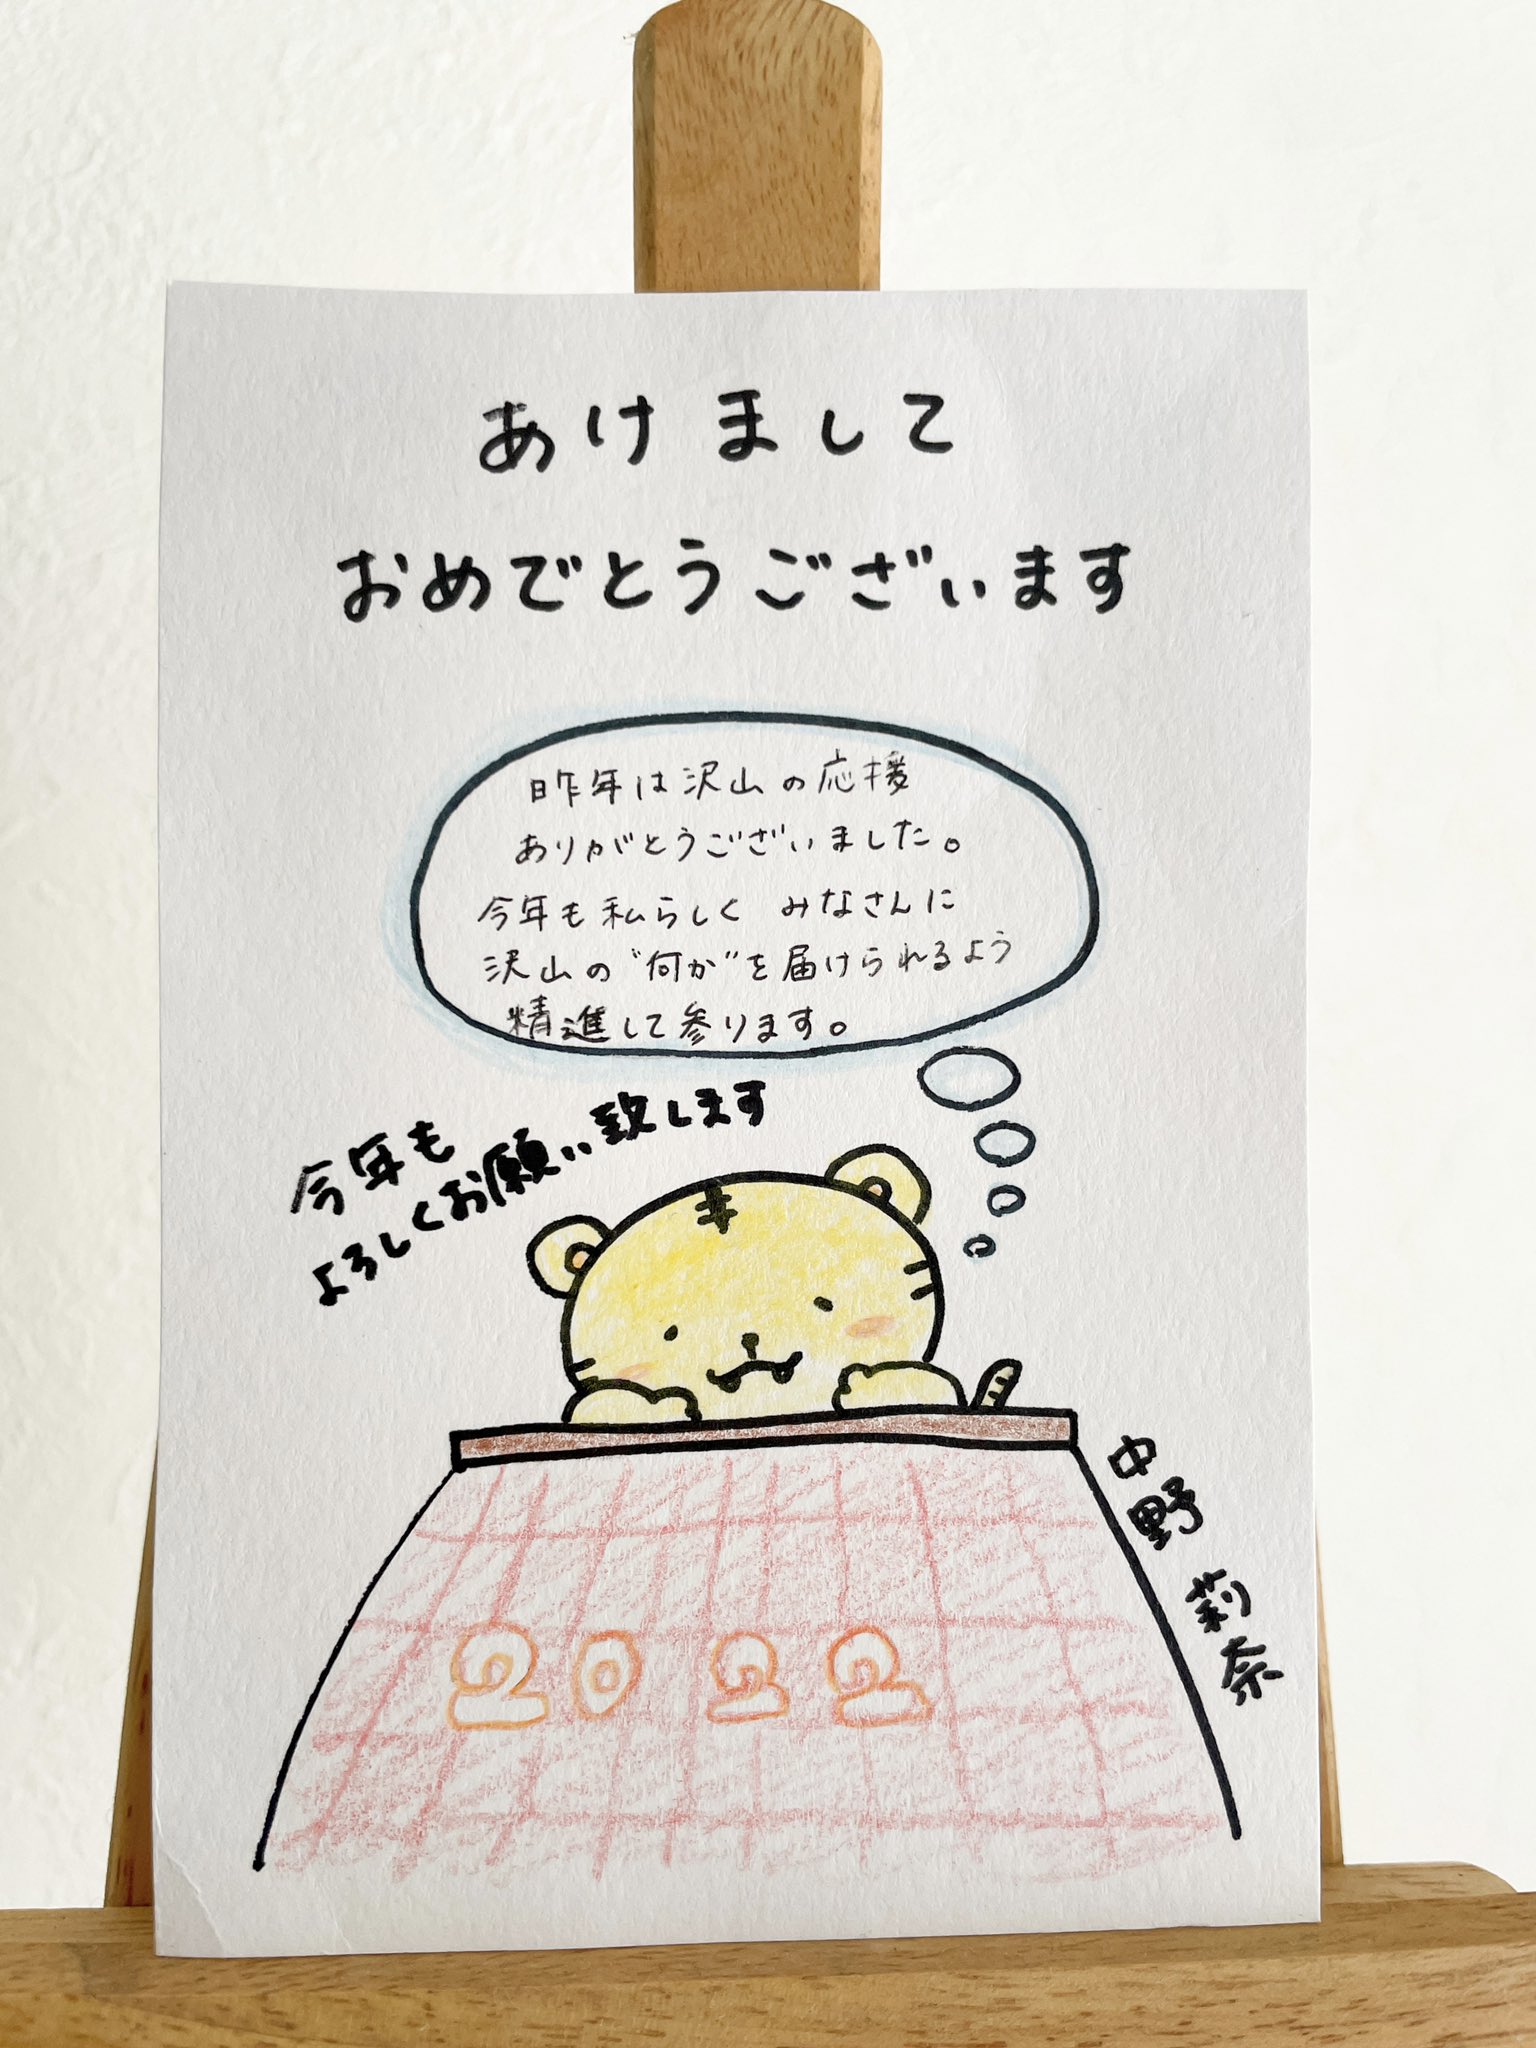 あけまして
おめでとうございます
昨年は沢山の応援
ありがとうございました。
今年も私らしく みなさんに
沢山の"何か"を届けられるよう
精進して参ります。
今年も
よろしくお願い致します
中野 莉奈
2022